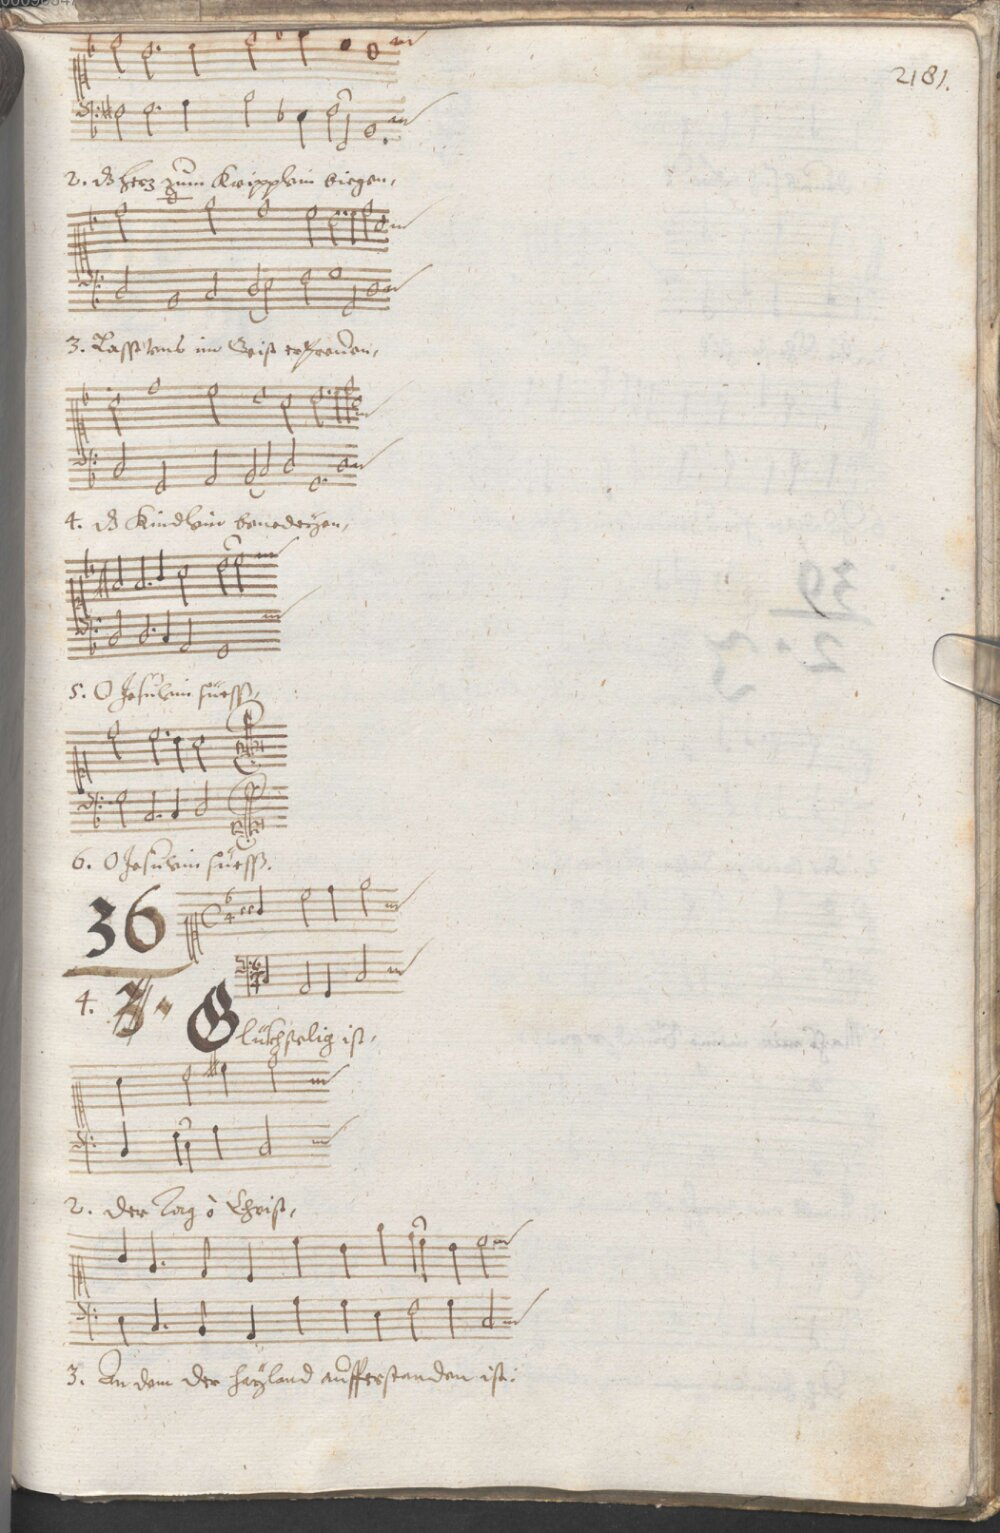 2181.
2. ds herz zum Kripplein biegen,
3. Lasst vns im Geist erfreuen,
4. ds Kindlein benedeyen,
5. O Jesulein süess,
6. O Jesulein süess.
36
4.
Glükhselig ist,
2. der Tag ô Christ,
3. An dem der hayland aufferstanden ist: